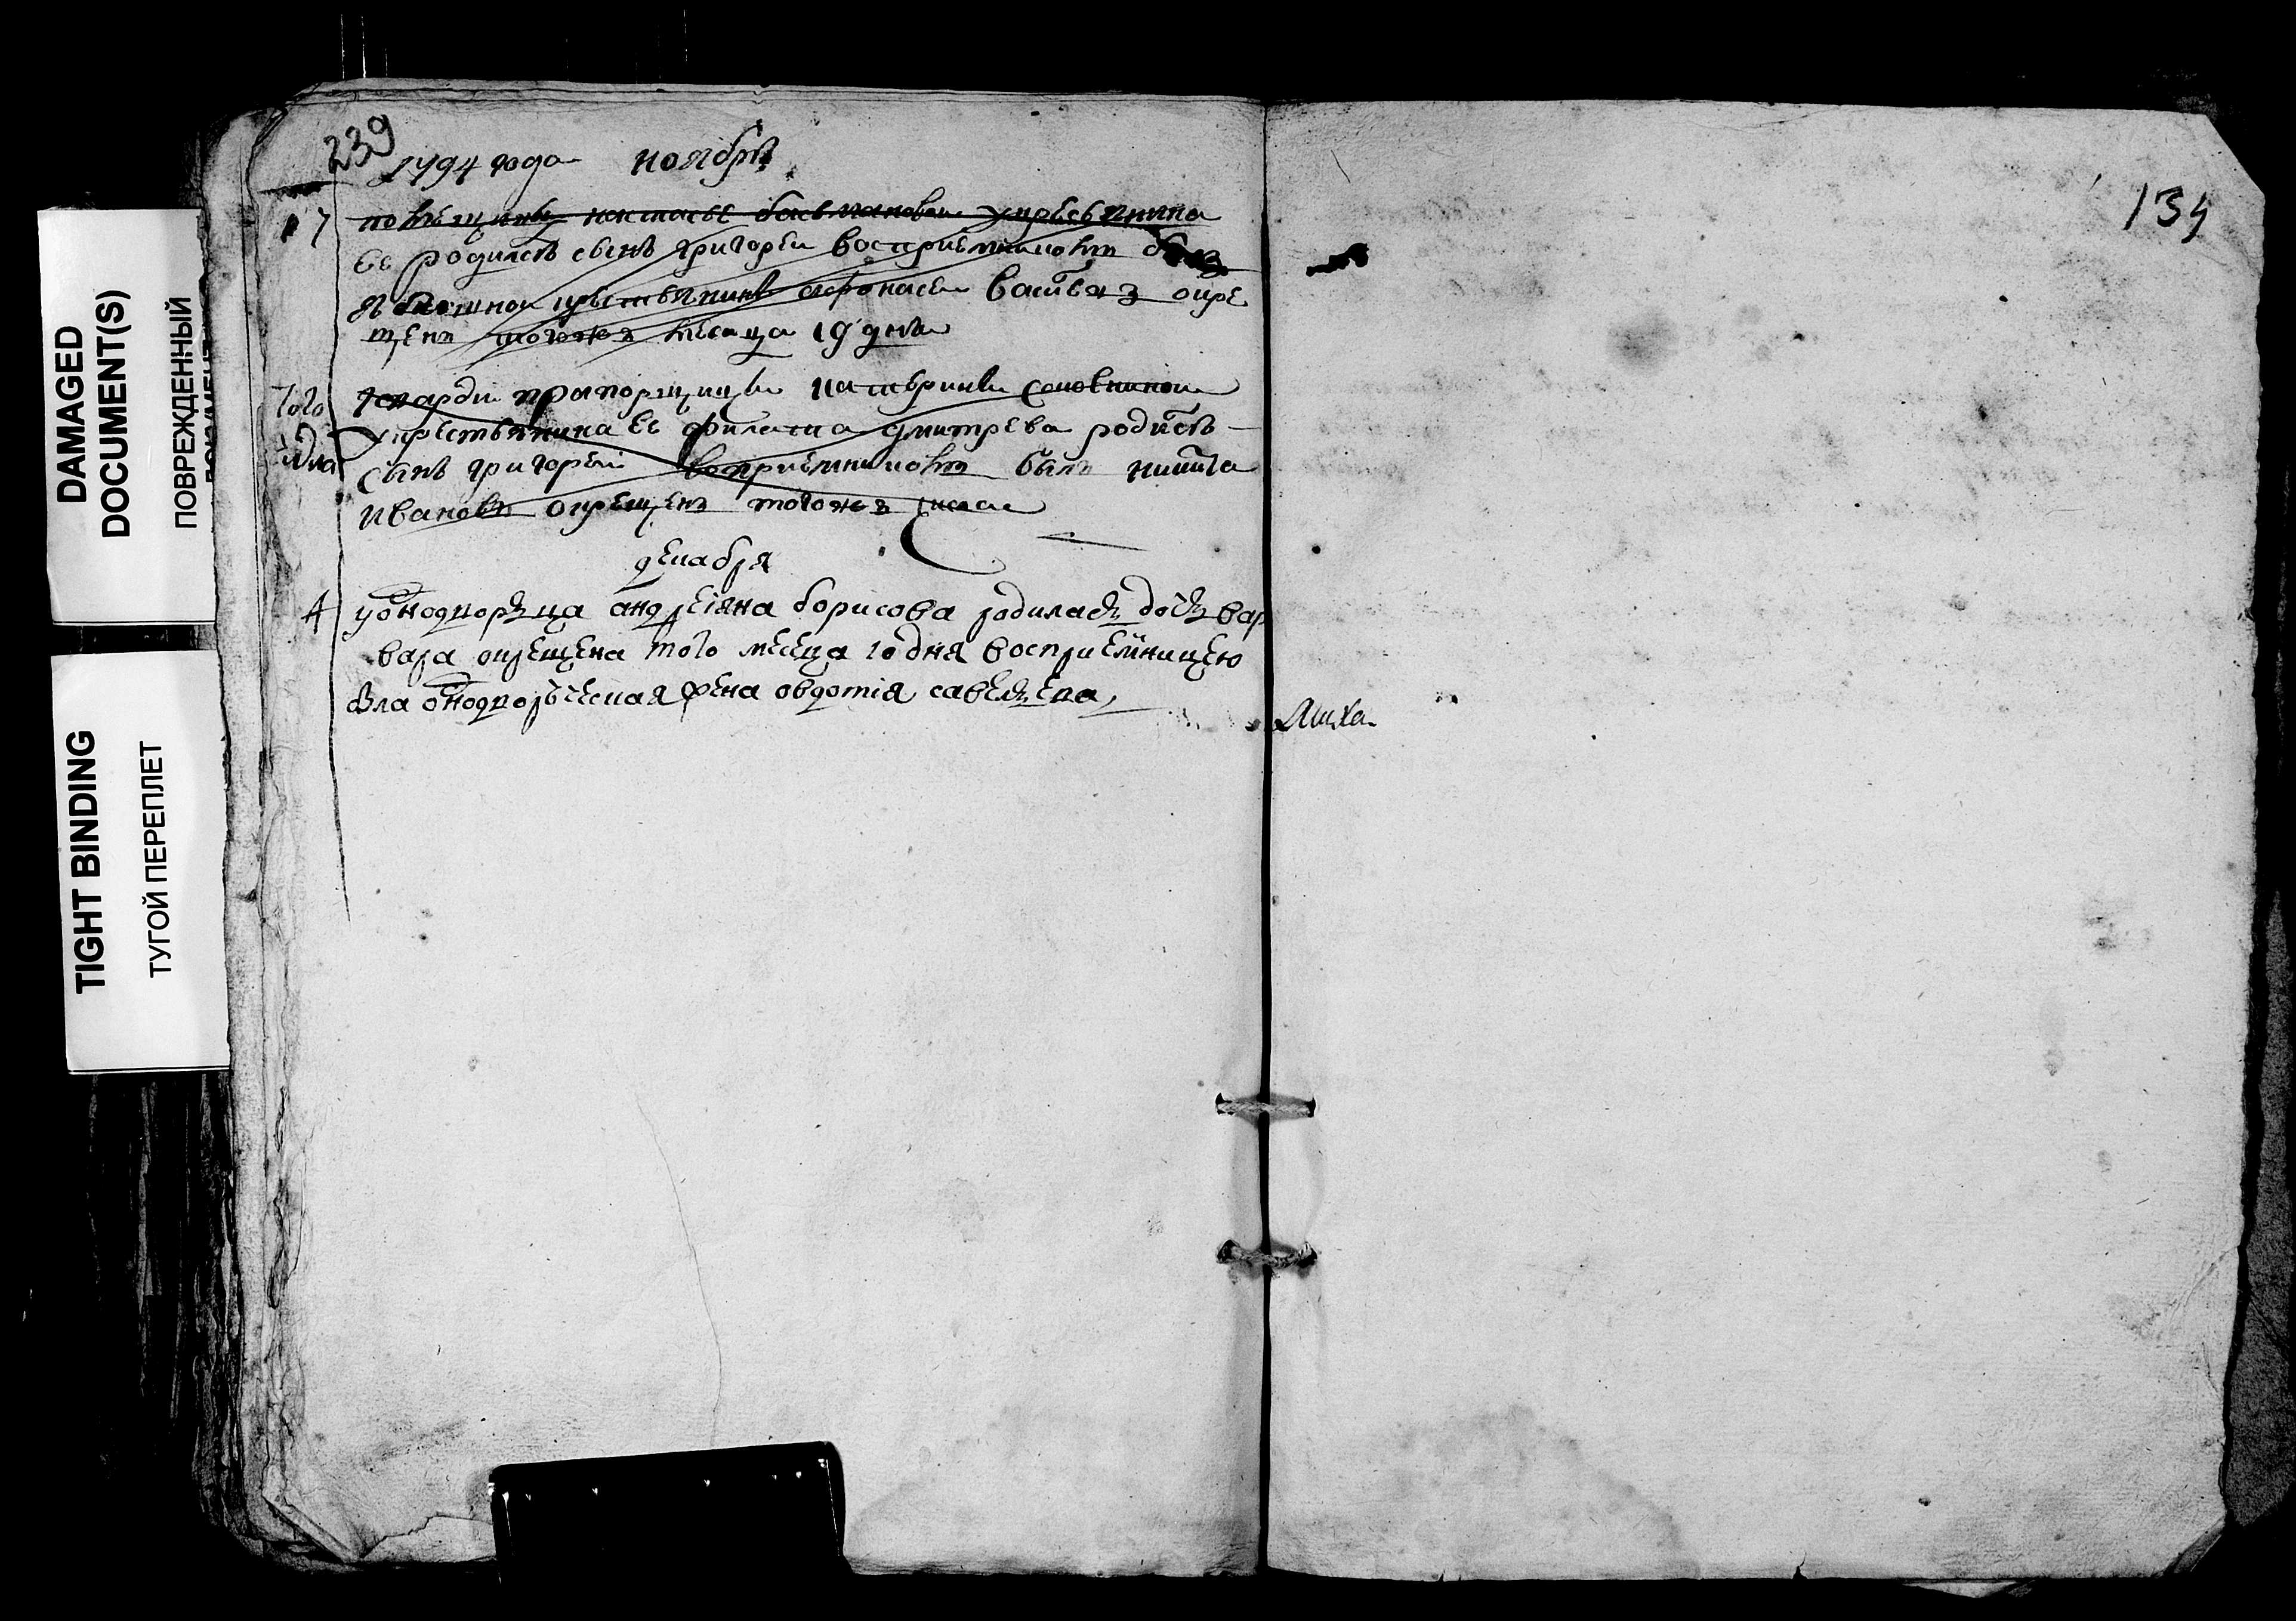 DAMAGED
DOCUMENT(S)
ПОВРЕЖДЕННЫЙ
TIGHT BINDING
ТУГОЙ ПЕРЕПЛЕТ
239
1794 года ноября
17
ее родился сынъ григореи восприемникомъ былъ
крестьянинъ афонасеи окре
щенъ тогожъ месяца 19 дня
того
дня
прапорщицы катерины
у крестьянина ее филата дмитрева родился
сынъ григореи восприемникомъ былъ никита
ивановъ окрещенъ тогожъ числа
декабря
4 у однодворца андреiяна борисова родилась дочь вар
вара окрещена того месеца 10 дня восприемницею
была однодворческая жена овдотiя савельева
134